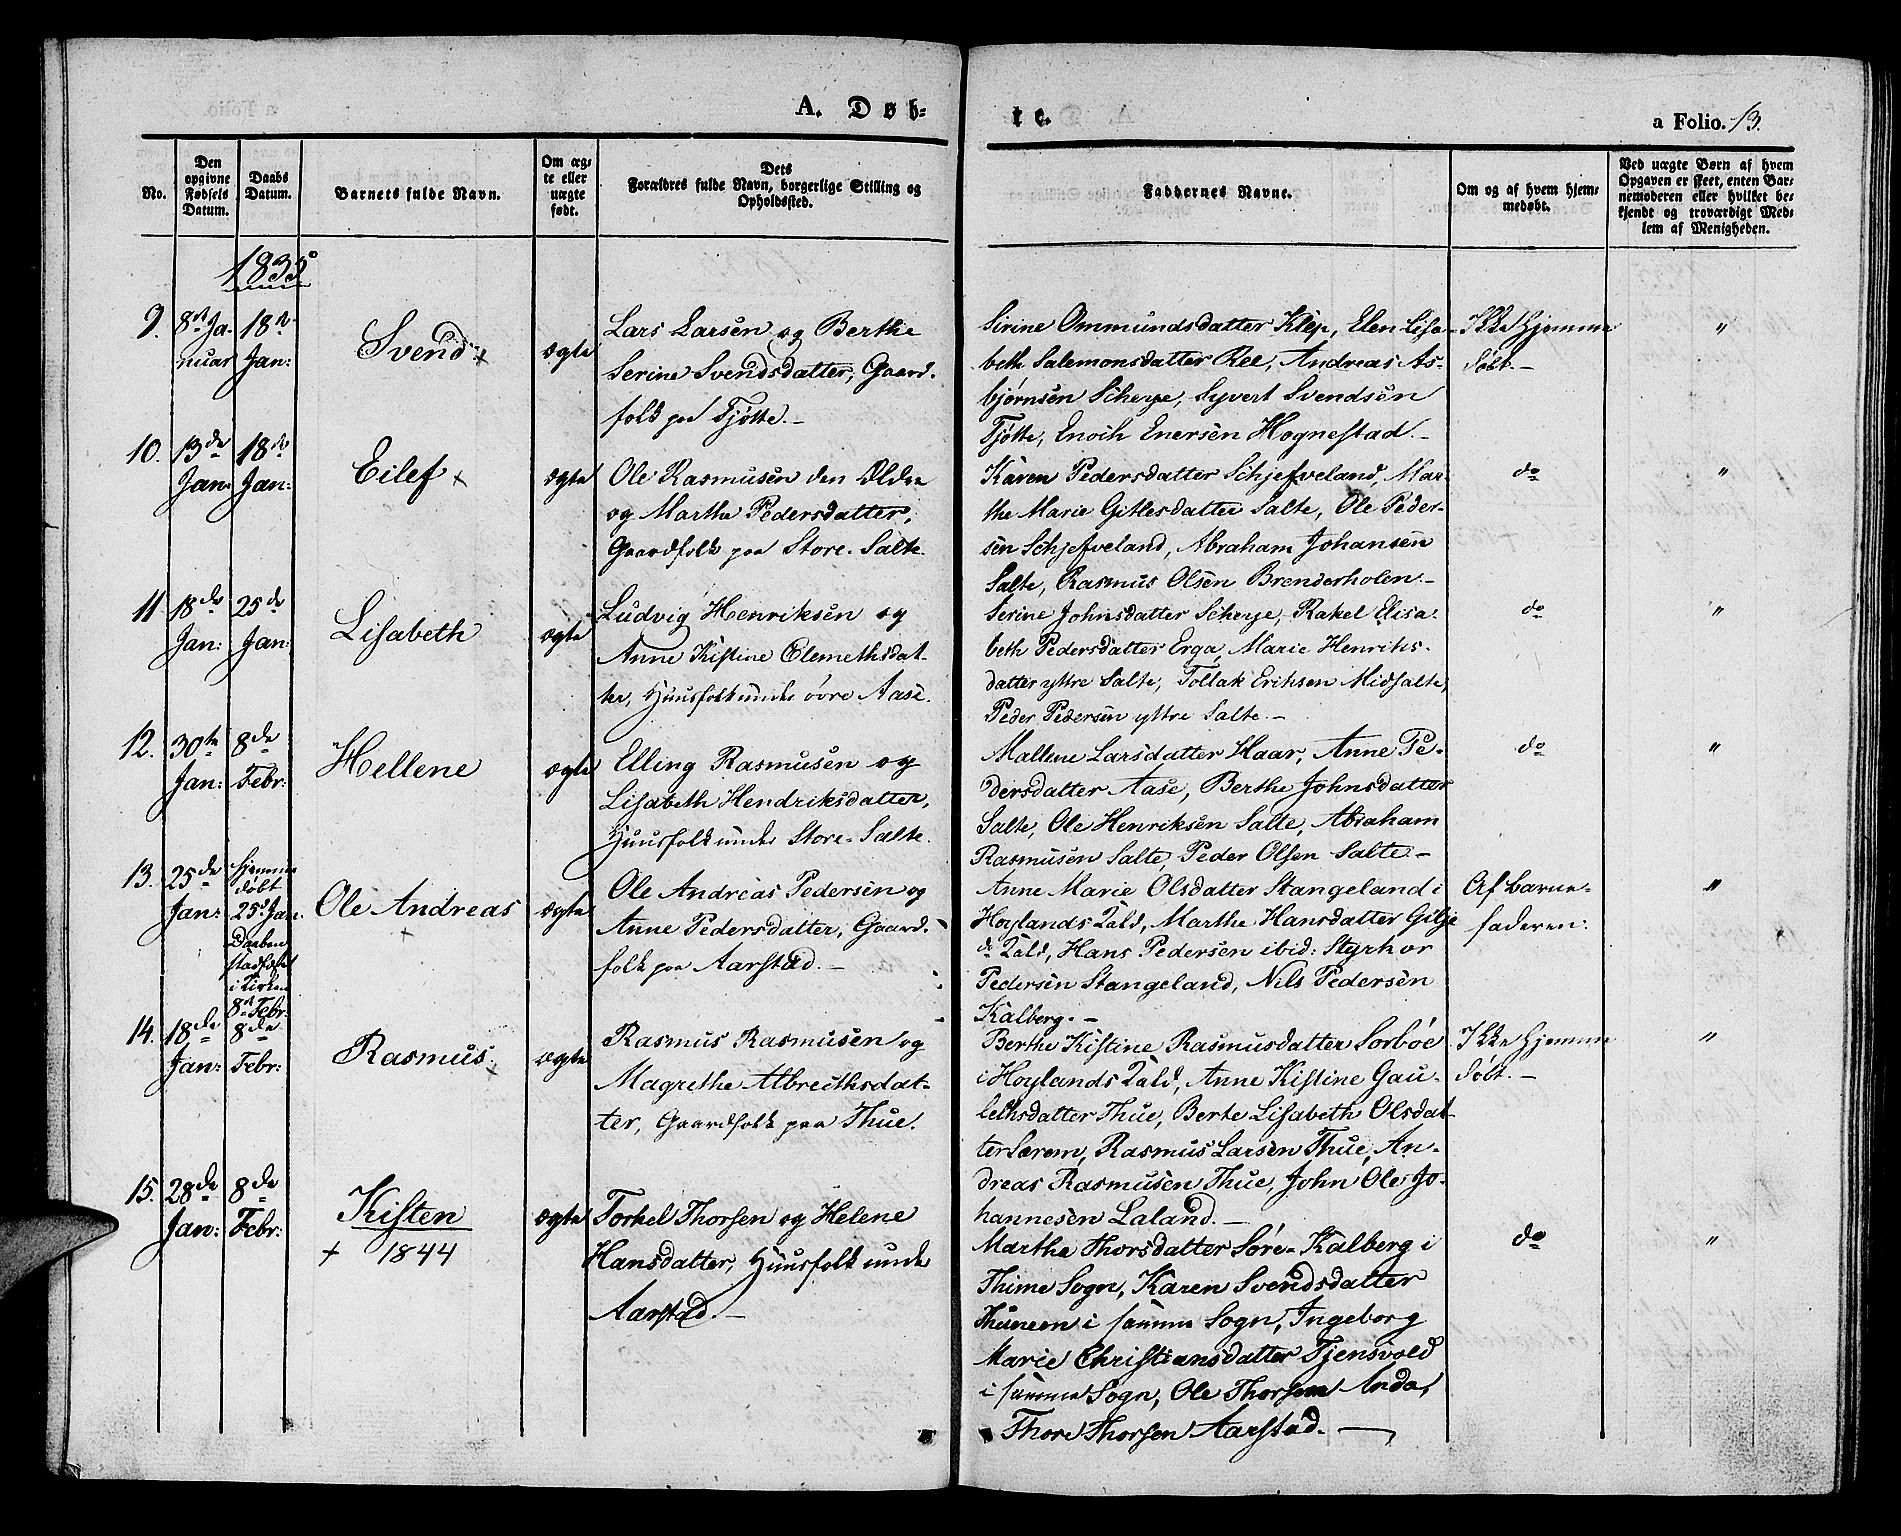 A. Døb=
te.
a Folio. 13.
No.
Den opgivne Fødsels Datum.
Daabs Datum.
Barnets fulde Navn.
Om ægte eller uægte født.
Dets Forældres fulde Navn, borgerlige Stilling og Opholdssted.
Faddernes Navne.
Om og af hvem hjemmedøbt.
Ved uægte Børn af hvem Opgaven er skeet, enten Barnemoderen eller hvilket bekjendt og troværdigt Medlem af Menigheden.
1835
9. 8de Januar
18de Jan:
Svend +
ægte
Lars Larsen og Berthe
Serine Svendsdatter, Gaard-
folk paa Tjøtte.-
Sirine Ommundsdatter Klep, Elen Lisa-
beth Salemonsdatter Ree, Andreas As-
bjørnsen Scherje, Syvert Svendsen
Tjøtte, Enoch Enersen Hognestad.-
Ikke Hjemme
døbt.-
"
10. 13de Jan:
18de Jan:
Eilef +
ægte
Ole Rasmusen den Ældre
og Marthe Pedersdatter,
Gaardfolk paa Store-Salte.
Karen Pedersdatter Schjefveland, Mar-
the Marie Gitlesdatter Salte, Ole Peder-
sen Schjefveland, Abraham Johansen
Salte, Rasmus Olsen Brenderholen.-
do
"
11 18de Jan:
25de Jan:
Lisabeth
ægte
Ludvig Henriksen og
Anne Kistine Elemethsdat-
ter, Huusfolk under øvre Aase.
Serine Johnsdatter Scherje, Rakel Elisa-
beth Pedersdatter Erga, Marie Henriks-
datter yttre Salte, Tollak Eriksen Midsalte,
Peder Pedersen yttre Salte.-
do
"
12. 30te Jan:
8de Febr:
Hellene
ægte
Elling Rasmusen og
Lisabeth Hendriksdatter,
Huusfolk under Store-Salte.
Mallene Larsdatter Haar, Anne Pe-
dersdatter Aase, Berthe Johnsdatter
Salte, Ole Henriksen Salte, Abraham
Rasmusen Salte, Peder Olsen Salte.-
do
"
13. 25de Jan:
Hjemme
døbt
25d Jan.
Daaben
stadfæstet
i Kirken
8de Febr.
Ole Andreas
+
ægte
Ole Andreas Pedersen og
Anne Pedersdatter, Gaard-
folk paa Aarstad.-
Anne Marie Olsdatter Stangeland i
Hoylands Gield, Marthe Hansdatter Gilje
do Gield, Hans Pedersen ibid: Styrkor
Pedersen Stangeland, Nils Pedersen
Kalberg.-
Af Barne-
faderen:
"
14. 18de Jan:
8de Febr:
Rasmus. +
ægte
Rasmus Rasmusen og
Magrethe Albrecthsdat-
ter, Gaardfolk paa Thue.
Berthe Kistine Rasmusdatter Sorbøe
i Hoylands Gield, Anne Kistine Gau-
lethsdatter Thue, Berte Lisabeth Olsdat-
ter Særem, Rasmus Larsen Thue, An-
dreas Rasmusen Thue, John Ole Jo-
hannesen Laland.-
Ikke Hjemme
døbt.-
"
15. 28de Jan:
8de Febr:
Kisten
+ 1844
ægte
Torkel Thorsen og Helene
Hansdatter, Huusfolk under
Aarstad.-
Marthe Thorsdatter Søre-Kalberg i
Thime Sogn, Karen Svendsdatter
Thunem i samme Sogn, Ingeborg
Marie Christiansdatter Tjensvold
i samme Sogn, Ole Thorsen Anda,
Thore Thorsen Aarstad.-
do
"